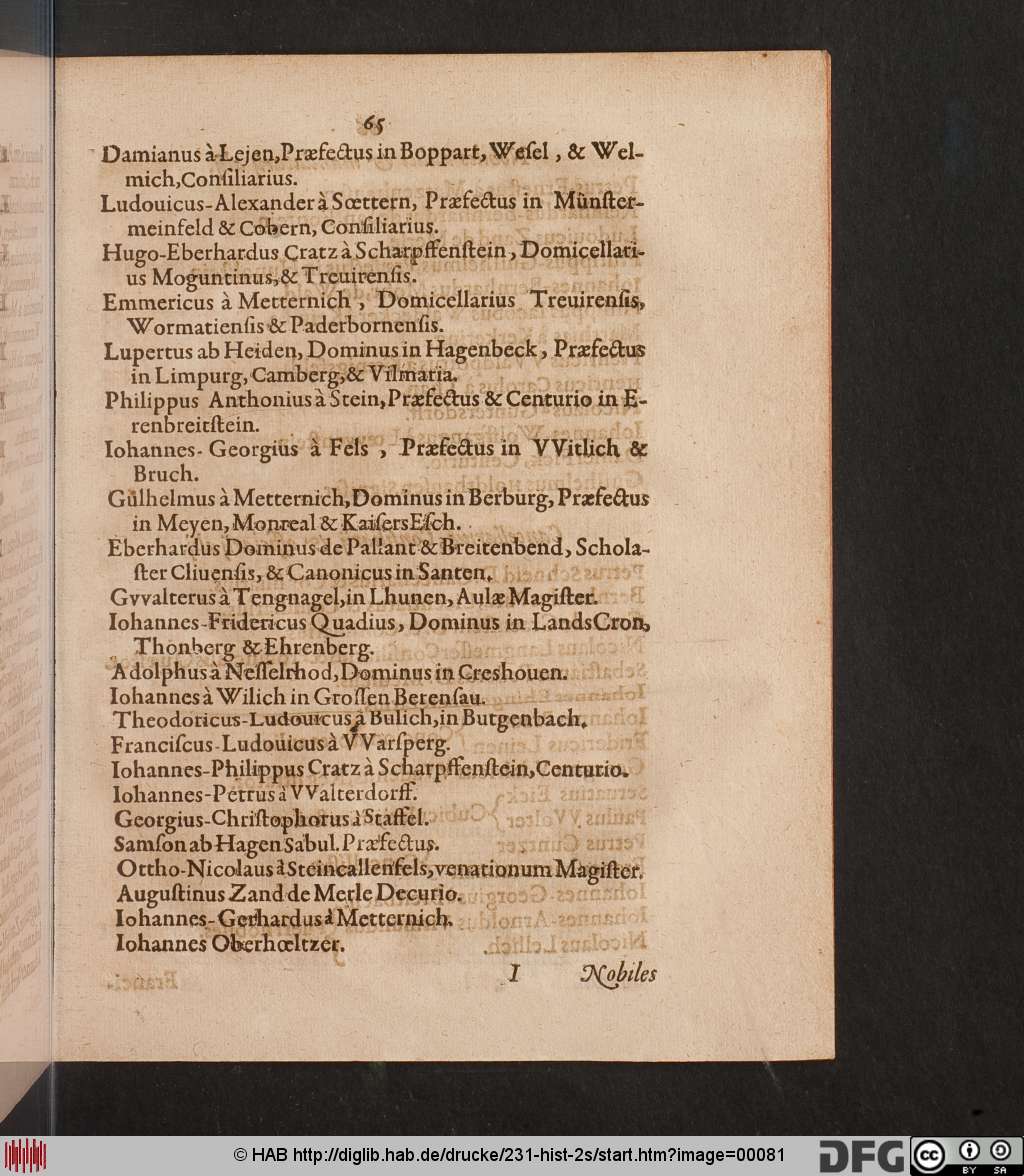 65
Damianus à Lejen, Præfectus in Boppart, Weſel, & Wel-
mich, Conſiliarius.
Ludouicus-Alexander à Sœttern, Præfectus in Mùnſter-
meinfeld & Cobern, Conſiliarius.
Hugo-Eberhardus Cratz à Scharpffenſtein, Domicellari-
us Moguntinus, & Treuirenſis.
Emmericus à Metternich, Domicellarius Treuirenſis,
Wormatienſis & Paderbornenſis.
Lupertus ab Heiden, Dominus in Hagenbeck, Præfectus
in Limpurg, Camberg, & Vilmaria.
Philippus Anthonius à Stein, Præfectus & Centurio in E-
renbreitſtein.
Iohannes-Georgius à Fels, Præfectus in VVitlich &
Bruch.
Gülhelmus à Metternich, Dominus in Berburg, Præfectus
in Meyen, Monreal & KaiſersEſch.
Eberhardus Dominus de Pallant & Breitenbend, Schola-
ſter Cliuenſis, & Canonicus in Santen.
Gvvalterus à Tengnagel, in Lhunen, Aulæ Magiſter.
Iohannes-Fridericus Quadius, Dominus in LandsCron,
Thonberg & Ehrenberg.
Adolphus à Neſſelrhod, Dominus in Creshouen.
Iohannes à Wilich in Groſſen Berenſau.
Theodoricus-Ludouicus à Bulich, in Butgenbach.
Franciſcus-Ludouicus à VVarſperg.
Iohannes-Philippus Cratz à Scharpffenſtein, Centurio.
Iohannes-Petrus à VValterdorff.
Georgius-Chriſtophorus à Staffel.
Samſon ab Hagen Sabul. Præfectus.
Ottho-Nicolaus à Steincallenfels, venationum Magiſter.
Auguſtinus Zand de Merle Decurio.
Iohannes-Gerhardus à Metternich.
Iohannes Oberhœltzer.
I Nobiles
© HAB http://diglib.hab.de/drucke/231-hist-2s/start.htm?image=00081
DFG
cc
BY SA